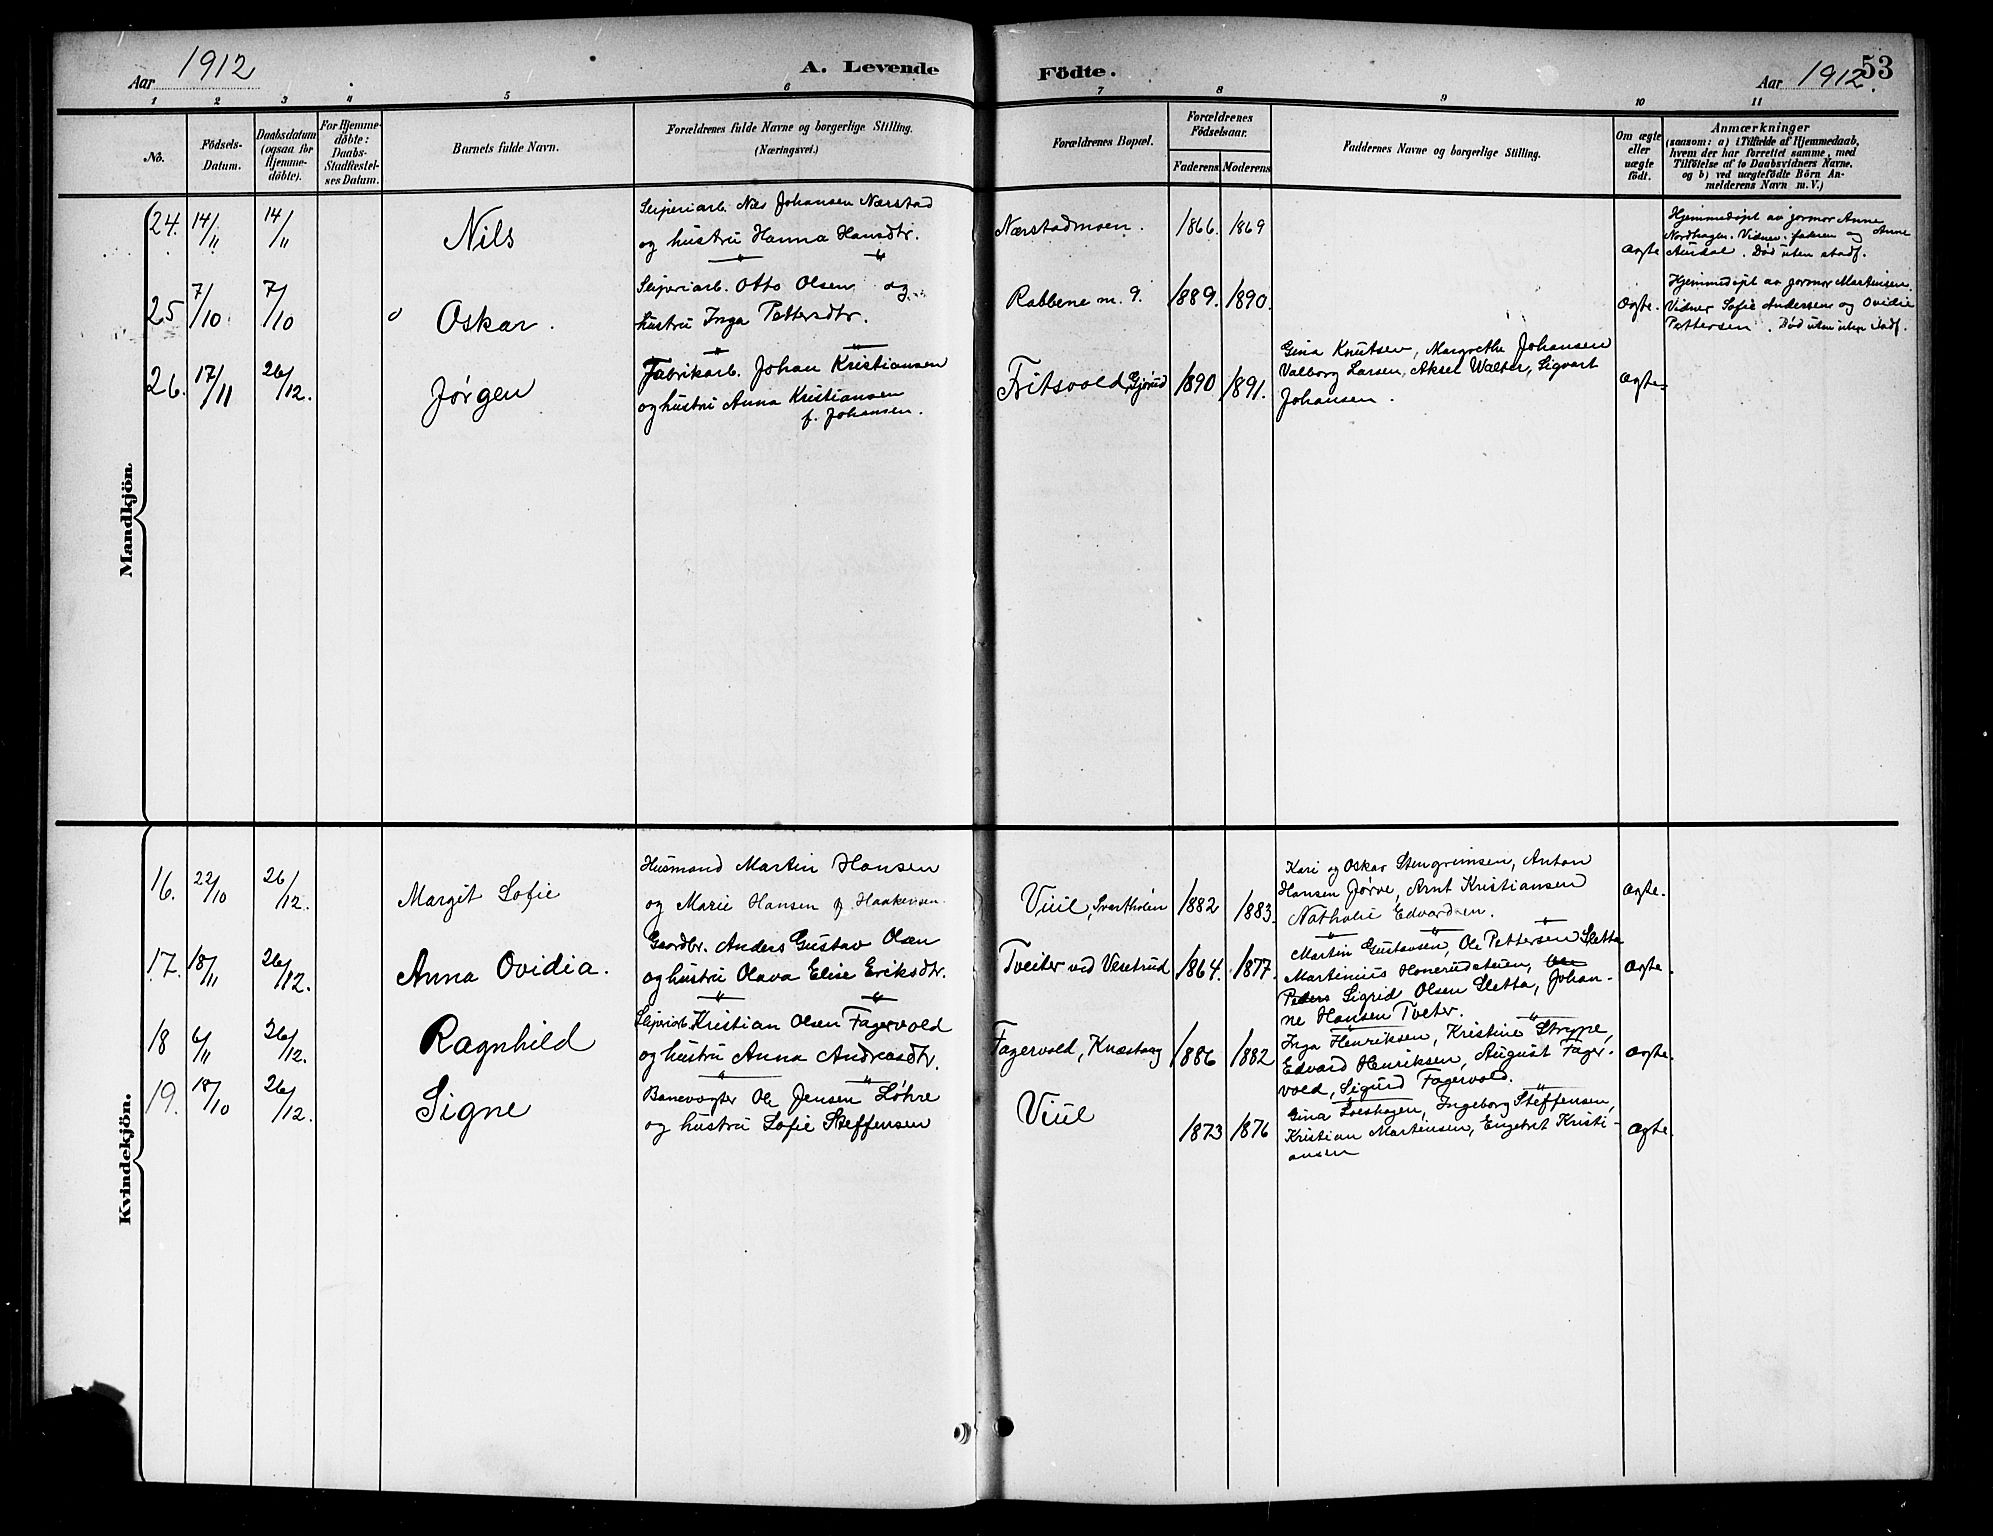 Aar 1912
A. Levende
Födte.
Aar 1912.
53
1 2 3 4 5 6 7 8 9 10 11
No.
Födsels-
Datum.
Daabsdatum
(ogsaa for
Hjemme-
döbte).
For Hjemme-
döbte:
Daabs-
Stadfæstel-
ses Datum.
Barnets fulde Navn.
Forældrenes fulde Navne og borgerlige Stilling.
(Næringsvei.)
Forældrenes Bopæl.
Forældrenes
Födselsaar.
Faderens
Moderens
Faddernes Navne og borgerlige Stilling.
Om ægte
eller
uægte
födt.
Anmærkninger
(saasom: a) i Tilfælde af Hjemmedaab,
hvem der har forrettet samme, med
Tilföielse af to Daabsvidners Navne.
og b) ved uægtefödte Börn An-
melderens Navn m. V.)
Mandkjön.
24. 14/11 14/11
Nils
Sliperiarb. Nils Johansen Nærstad
og hustru Hanna Hansdtr.
Nærstadmoen.
1866. 1869
Ægte
Hjemmedøpt av jormor Anne
Nordhagen. Vidner: faderen og Anne
Aurdal. Død uten stadf.
25 7/10. 7/10
Oskar.
Sliperiarb. Otto Olsen og
hustru Inga Pettersdtr.
Rabbene m. 9.
1889. 1890.
Ægte.
Hjemmedøpt av jormor Martinsen.
Vidner Sofie Andersens og Ovidie
Pettersen. Død uten stadf.
26. 17/11 26/12.
Jørgen
Fabrikarb. Johan Kristiansen
og hustru Anna Kristiansen
f. Johansen.
Fritsvold, Gjørud
1890 1891.
Gina Knutsen, Margrethe Johansen
Valborg Larsen, Aksel Walter, Sigvart
Johansen.
Ægte
Kvindekjön.
16. 22/10 26/12.
Margit Sofie
Husmand Martin Hansen
og Marie Hansen f. Haakensen.
Viul, Svartholen
1882 1883.
Kari og Oskar Stengrimsen, Anton
Hansen Jørve, Arnt Kristiansen
Nathalie Edvardsen.
Ægte.
17. 18/11 26/12.
Anna Ovidia.
Gaardbr. Anders Gustav Olsen
og hustru Olava Elise Eriksdtr.
Tveiter ved Veretrud
1864. 1877.
Martin Gustavsen, Ole Pettersen Sletta
Martinius Honerudsteien, Ole
Peders Sigrid Olsen Sletta, Johan-
ne Hansen Tveter.
Ægte.
18 6/11 26/12.
Ragnhild
Sliperiarb. Kristian Olsen Fagervold
og hustru Anna Andreasdtr.
Fagervold, Knæstang
1886 1882
Inga Henriksen, Kristine Strype,
Edvard Henriksen, August Fager-
vold, Sigurd Fagervold.
Ægte.
19. 18/10 26/12.
Signe
Banevogter Ole Jensen Løhre
og hustru Sofie Steffensen
Viul
1873 1876
Gina Loeshagen, Ingeborg Steffensen,
Kristian Martinsen, Engebret Kristi-
ansen
Ægte.